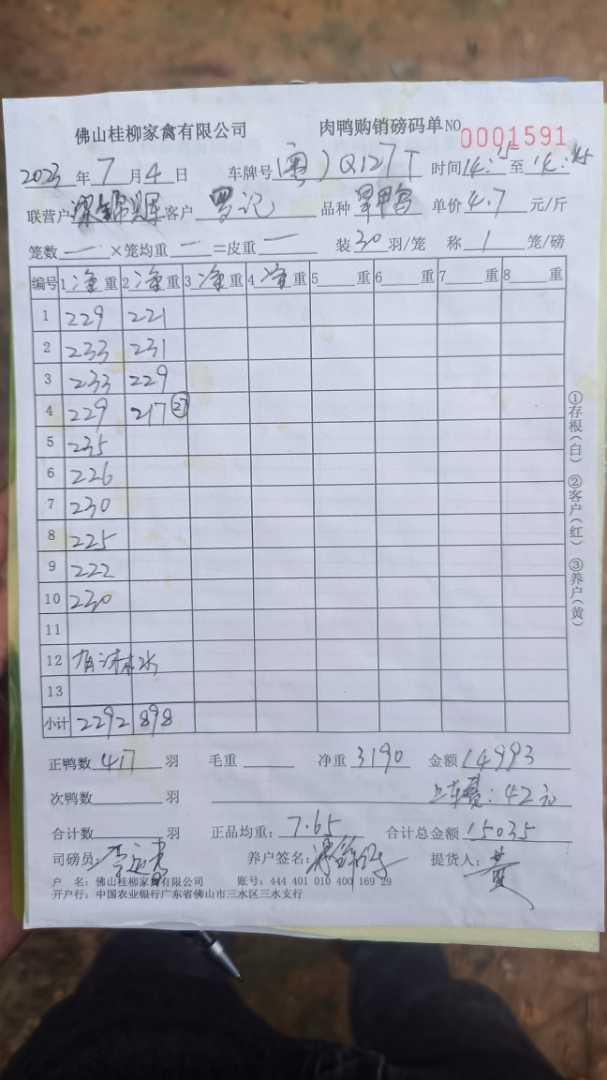 佛山桂柳家禽有限公司 肉鸭购销磅码单 NO 0001591
2023 年 7 月 4 日 车牌号(粤)Q127T 时间 14:15 至 14:45
联营户 客户 罗记 品种 单价 4.7 元/斤
笼数 — ×笼均重 — =皮重 — 装 30 羽/笼 称 1 笼/磅
编号 1 净 重 2 净 重 3 净 重 4 净 重 5 重 6 重 7 重 8 重
1 229 221
2 233 231
3 233 229
4 229 217 27
5 235
6 226
7 230
8 225
9 222
10 230
11
12 有淋水
13
小计 2292 898
正鸭数 417 羽 毛重 净重 3190 金额 14993
次鸭数 羽 上车费:42元
合计数 羽 正品均重: 7.65 合计总金额 15035
司磅员: 养户签名: 提货人: 黄
户 名:佛山桂柳家禽有限公司 账号:444 401 010 400 169 29
开户行:中国农业银行广东省佛山市三水区三水支行
①存根(白) ②客户(红) ③养户(黄)